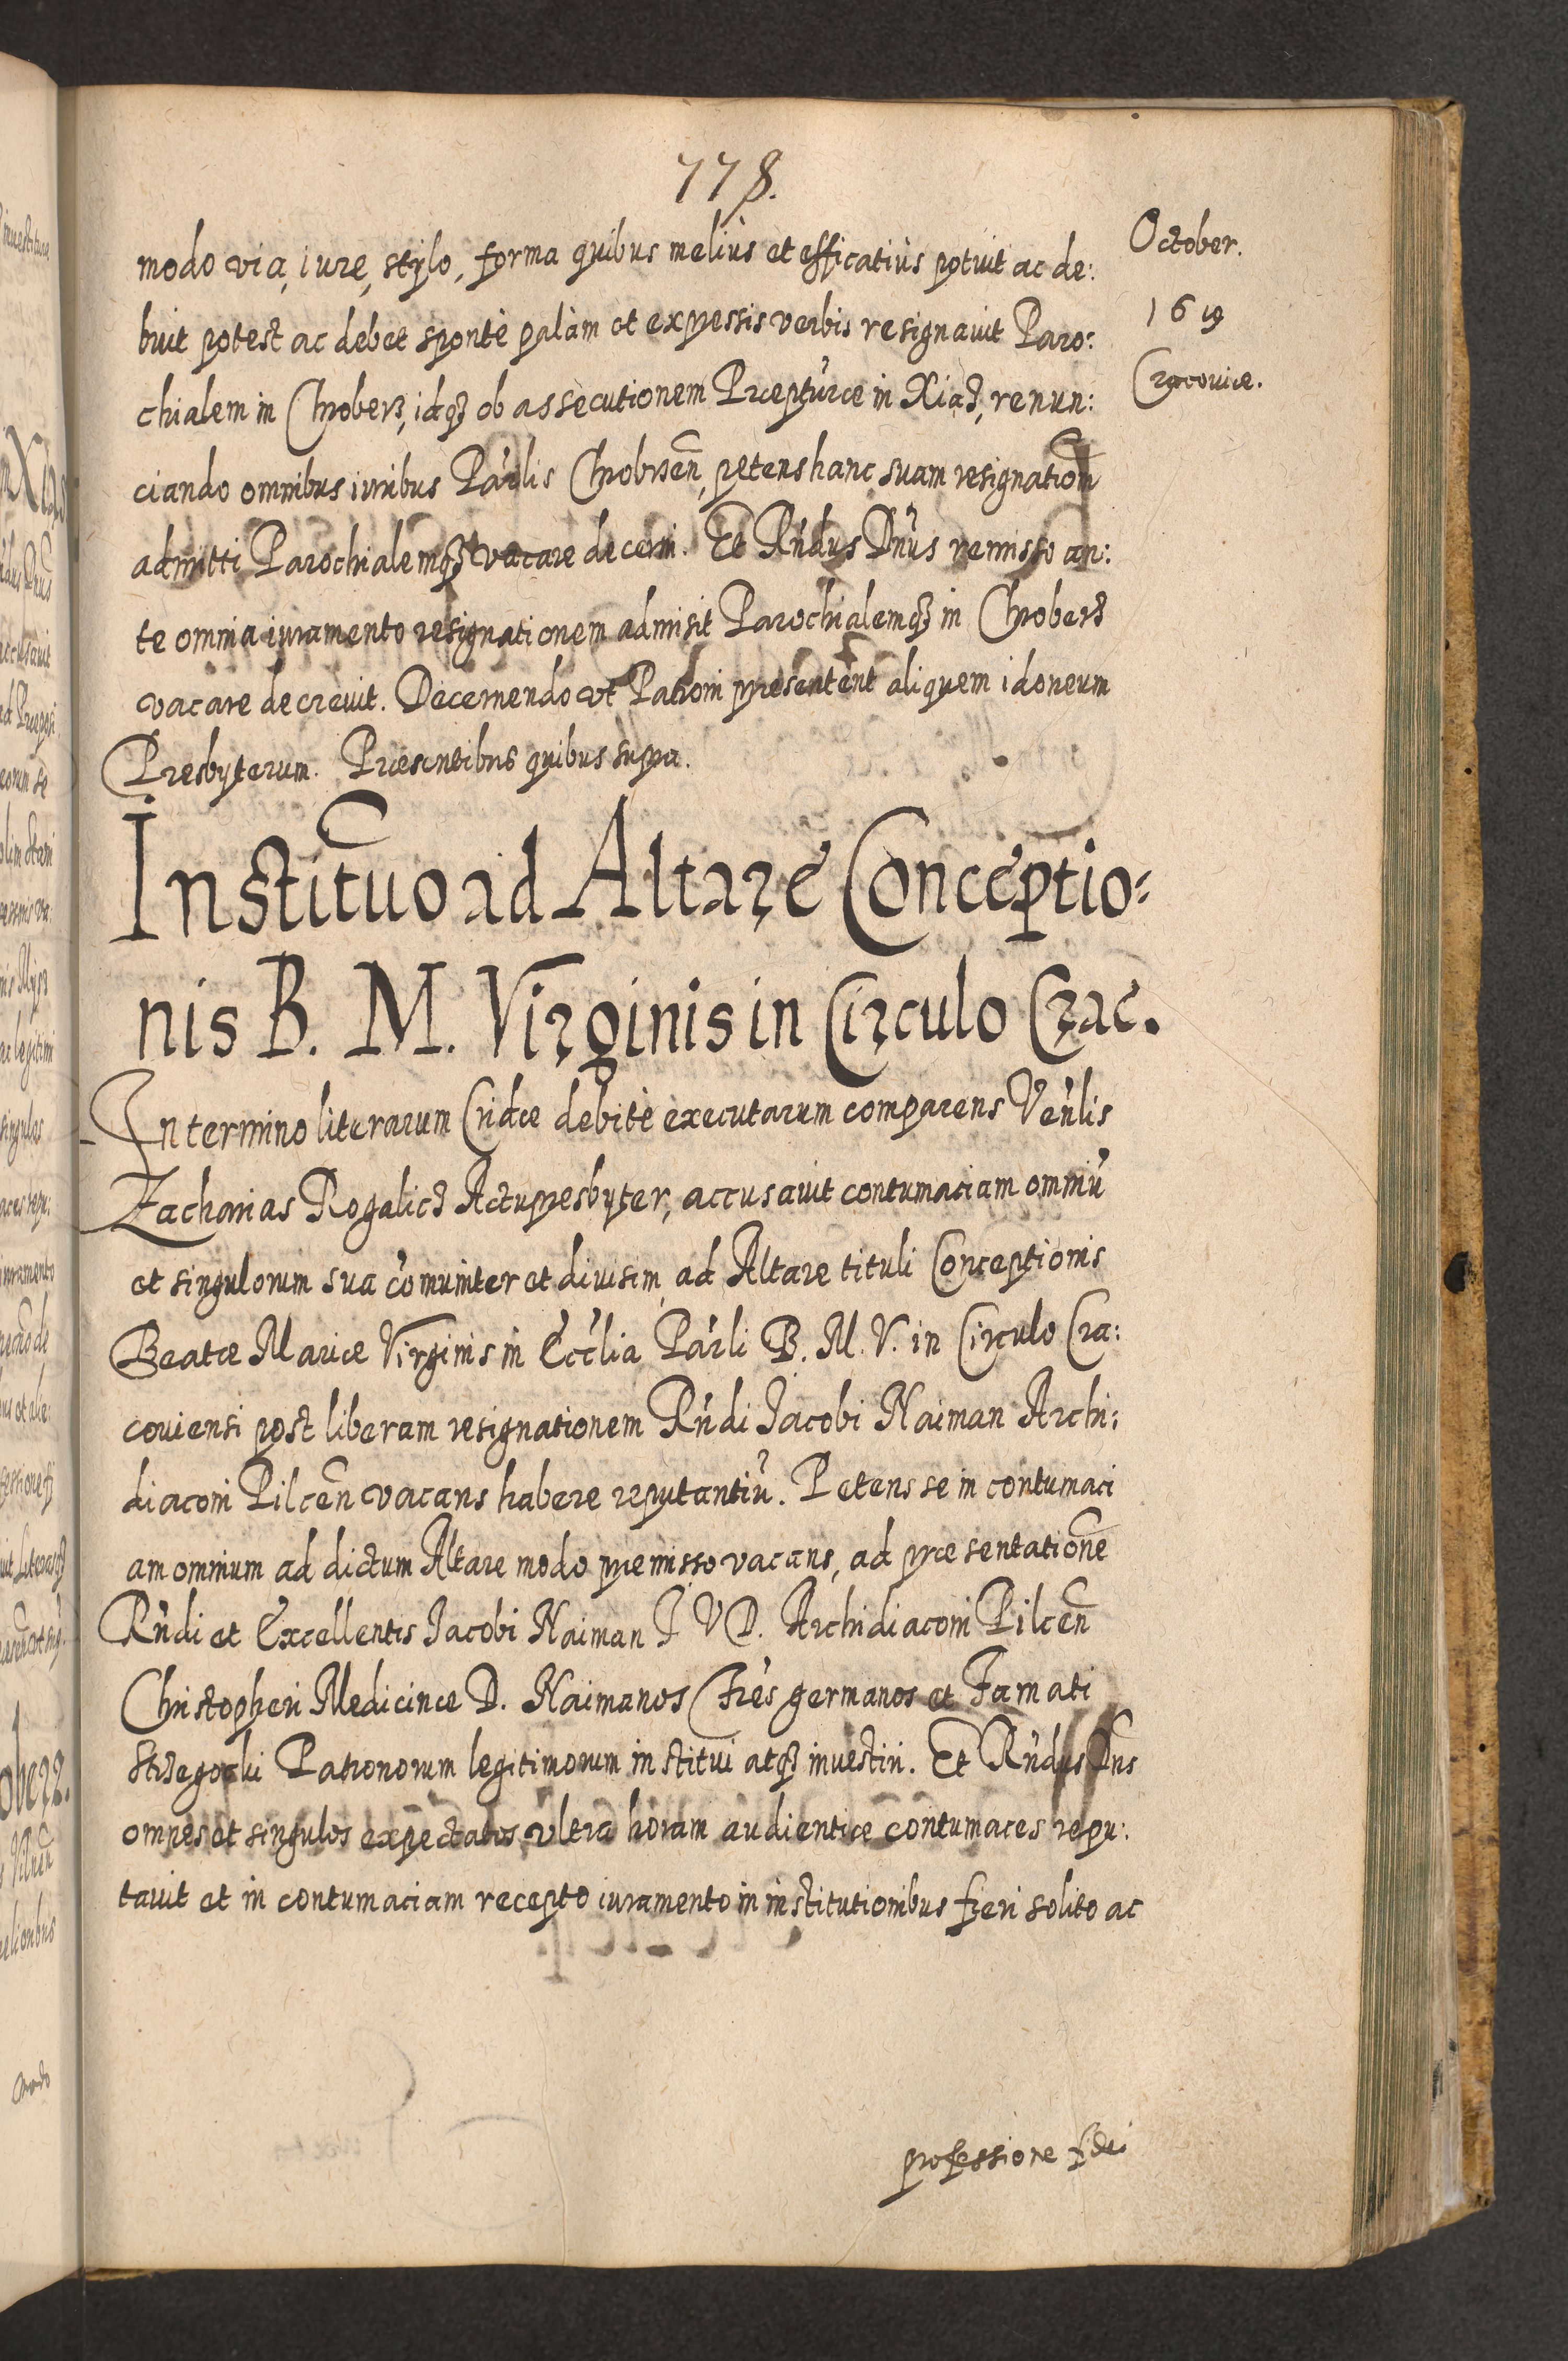 778.
October.
1619
Cracouiæ.
modo via, iure, stylo, forma quibus meliùs et efficatiùs potuit ac de:
buit potest ac debet spontè palàm et expressis verbis resignauit Paro:
chialem in Chroberz, idq3 ob assecutionem Præptúræ in Xiaz, renun:
ciando omnibus iuribus Párlis Chobrzen̄, petens hanc suam resignatiom̄
admitti Parochialemq3 vacare decerni. Et Rńdus Dńus remisso an:
te omnia iuramento resignationem admisit Parochialemq3 in Chroberz
vacare decreuit. Decernendo vt Patroni presentent aliquem idoneum
Presbyterum. Præsentibus quibus supra.
Institu͠o ad Altare Conceptio:
nis B. M. Virginis in Circulo Crac.
In termino literarum Cridæ debitè executarum comparens Veńlis
Zacharias Rogalicz Actupresbyter, accusauit contumaciam omniú
et singulorum sua cómuniter et diuisim ad Altare tituli Conceptionis
Beatæ Mariæ Virginis in Eccĺia Párli B. M. V. in Circulo Cra:
couiensi post liberam resignationem Rńdi Jacobi Naiman Archi:
diaconi Pilcen̄ vacans habere reputantiú. Petens se in contumaci
am omnium ad dictum Altare modo præmisso vacans, ad præsentation̄e
Rńdi et Excellentis Jacobi Naiman J V D. Archidiaconi Pilcen̄
Christopheri Medicinæ D. Naimanos Frés germanos et Famati
Patronorum legitimorum institui atq3 inuestiri. Et Rńdus Dńs
omnes et singulos expectatos vltra horam audientiæ contumaces repu:
tauit et in contumaciam recepto iuramento in institutionibus fieri solito ac
professione fidei